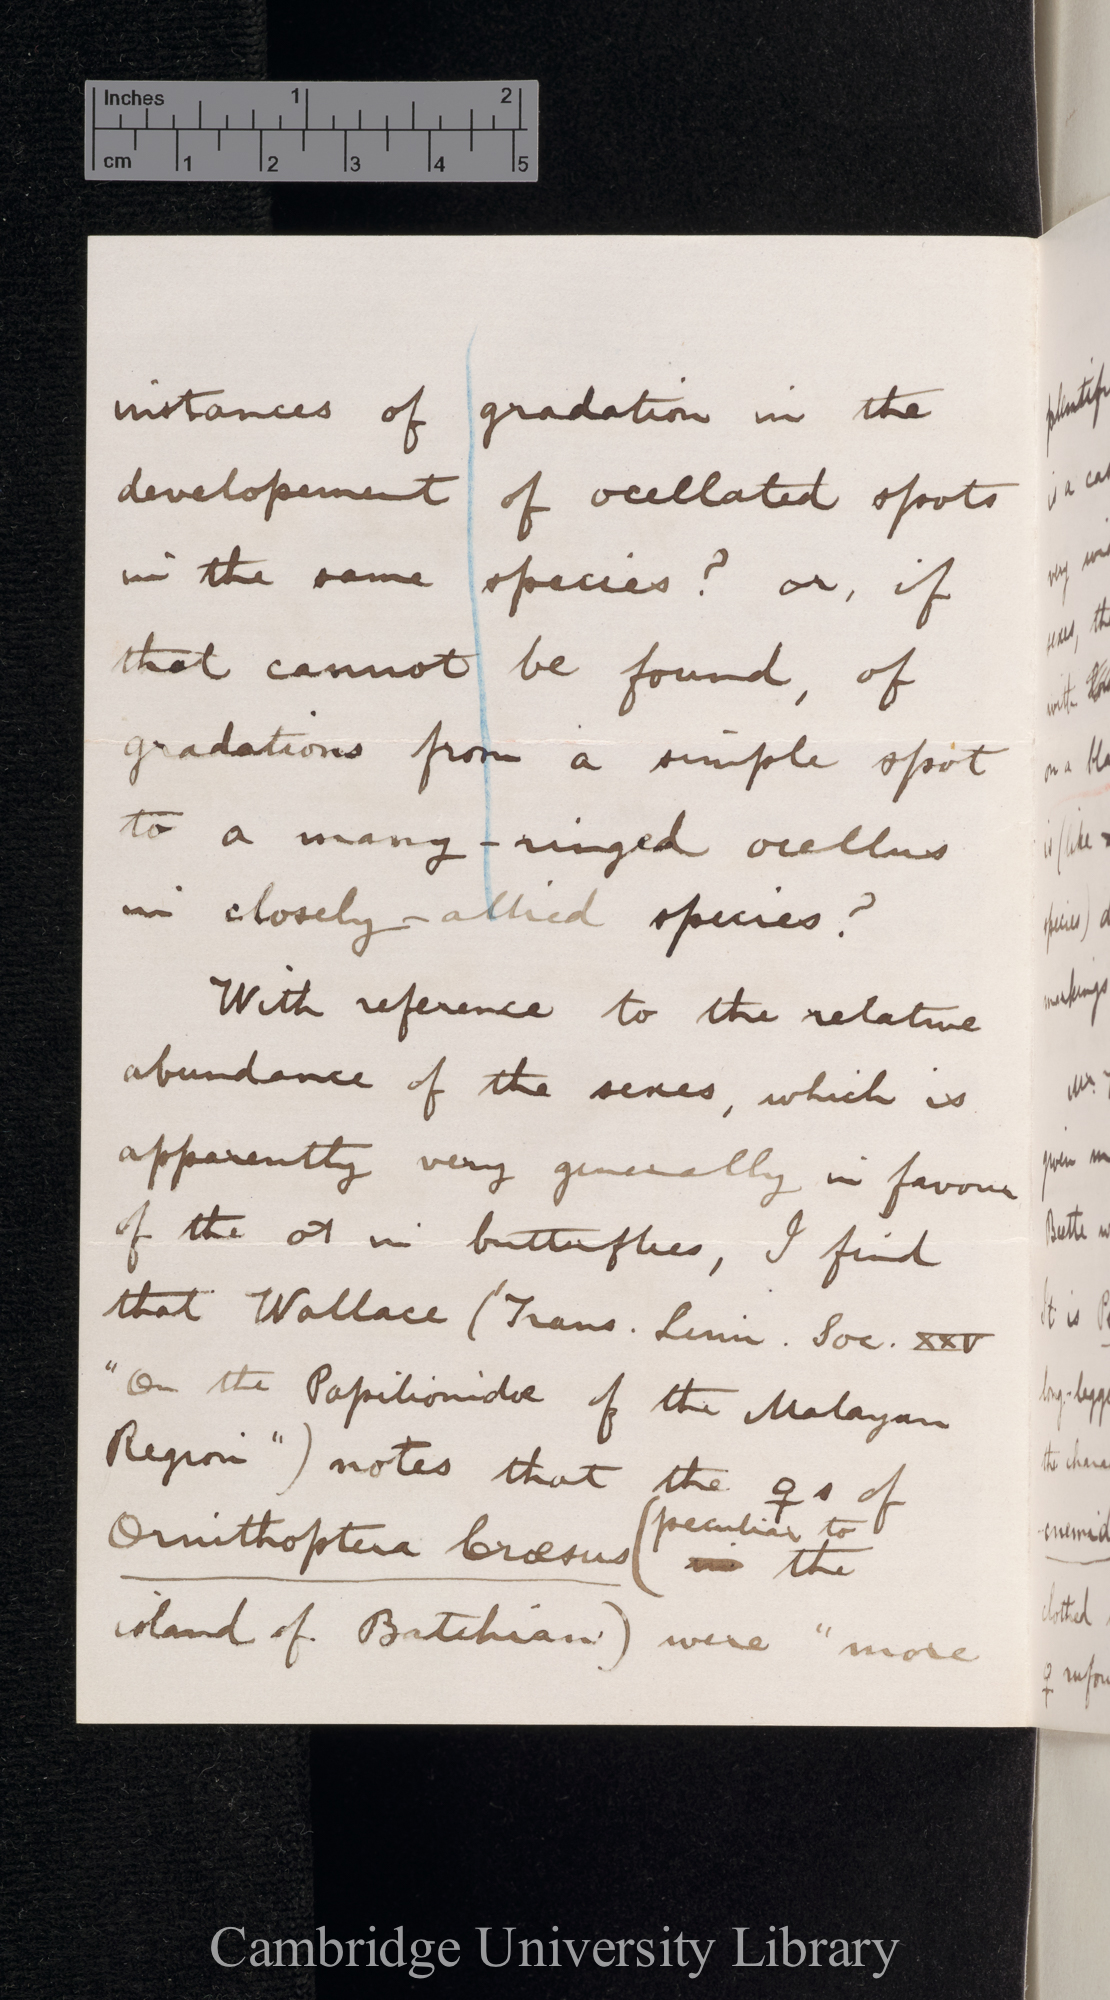 Inches 1 2
cm 1 2 3 4 5
instances of gradation in the
developement of ocellated spots
in the same species? or, if
that cannot be found, of
gradations from a simple spot
to a many-ringed ocellus
in closely-allied species?
With reference to the relative
abundance of the sexes, which is
apparently very generally in favour
of the ♂ in butterflies, I find
that Wallace (Trans. Linn. Soc. XXV
"On the Papilionidæ of the Malayan
Region") notes that the ♀s of
Ornithoptera Crœsus (peculiar to
in the
island of Batchian) were "more
plentif
is a
very
sexes, the
with
on a bla
is (like
species)
markings
Mr.
given
Beetle
It is
long-legg
the chara
cnemid
clothed
♀
Cambridge University Library